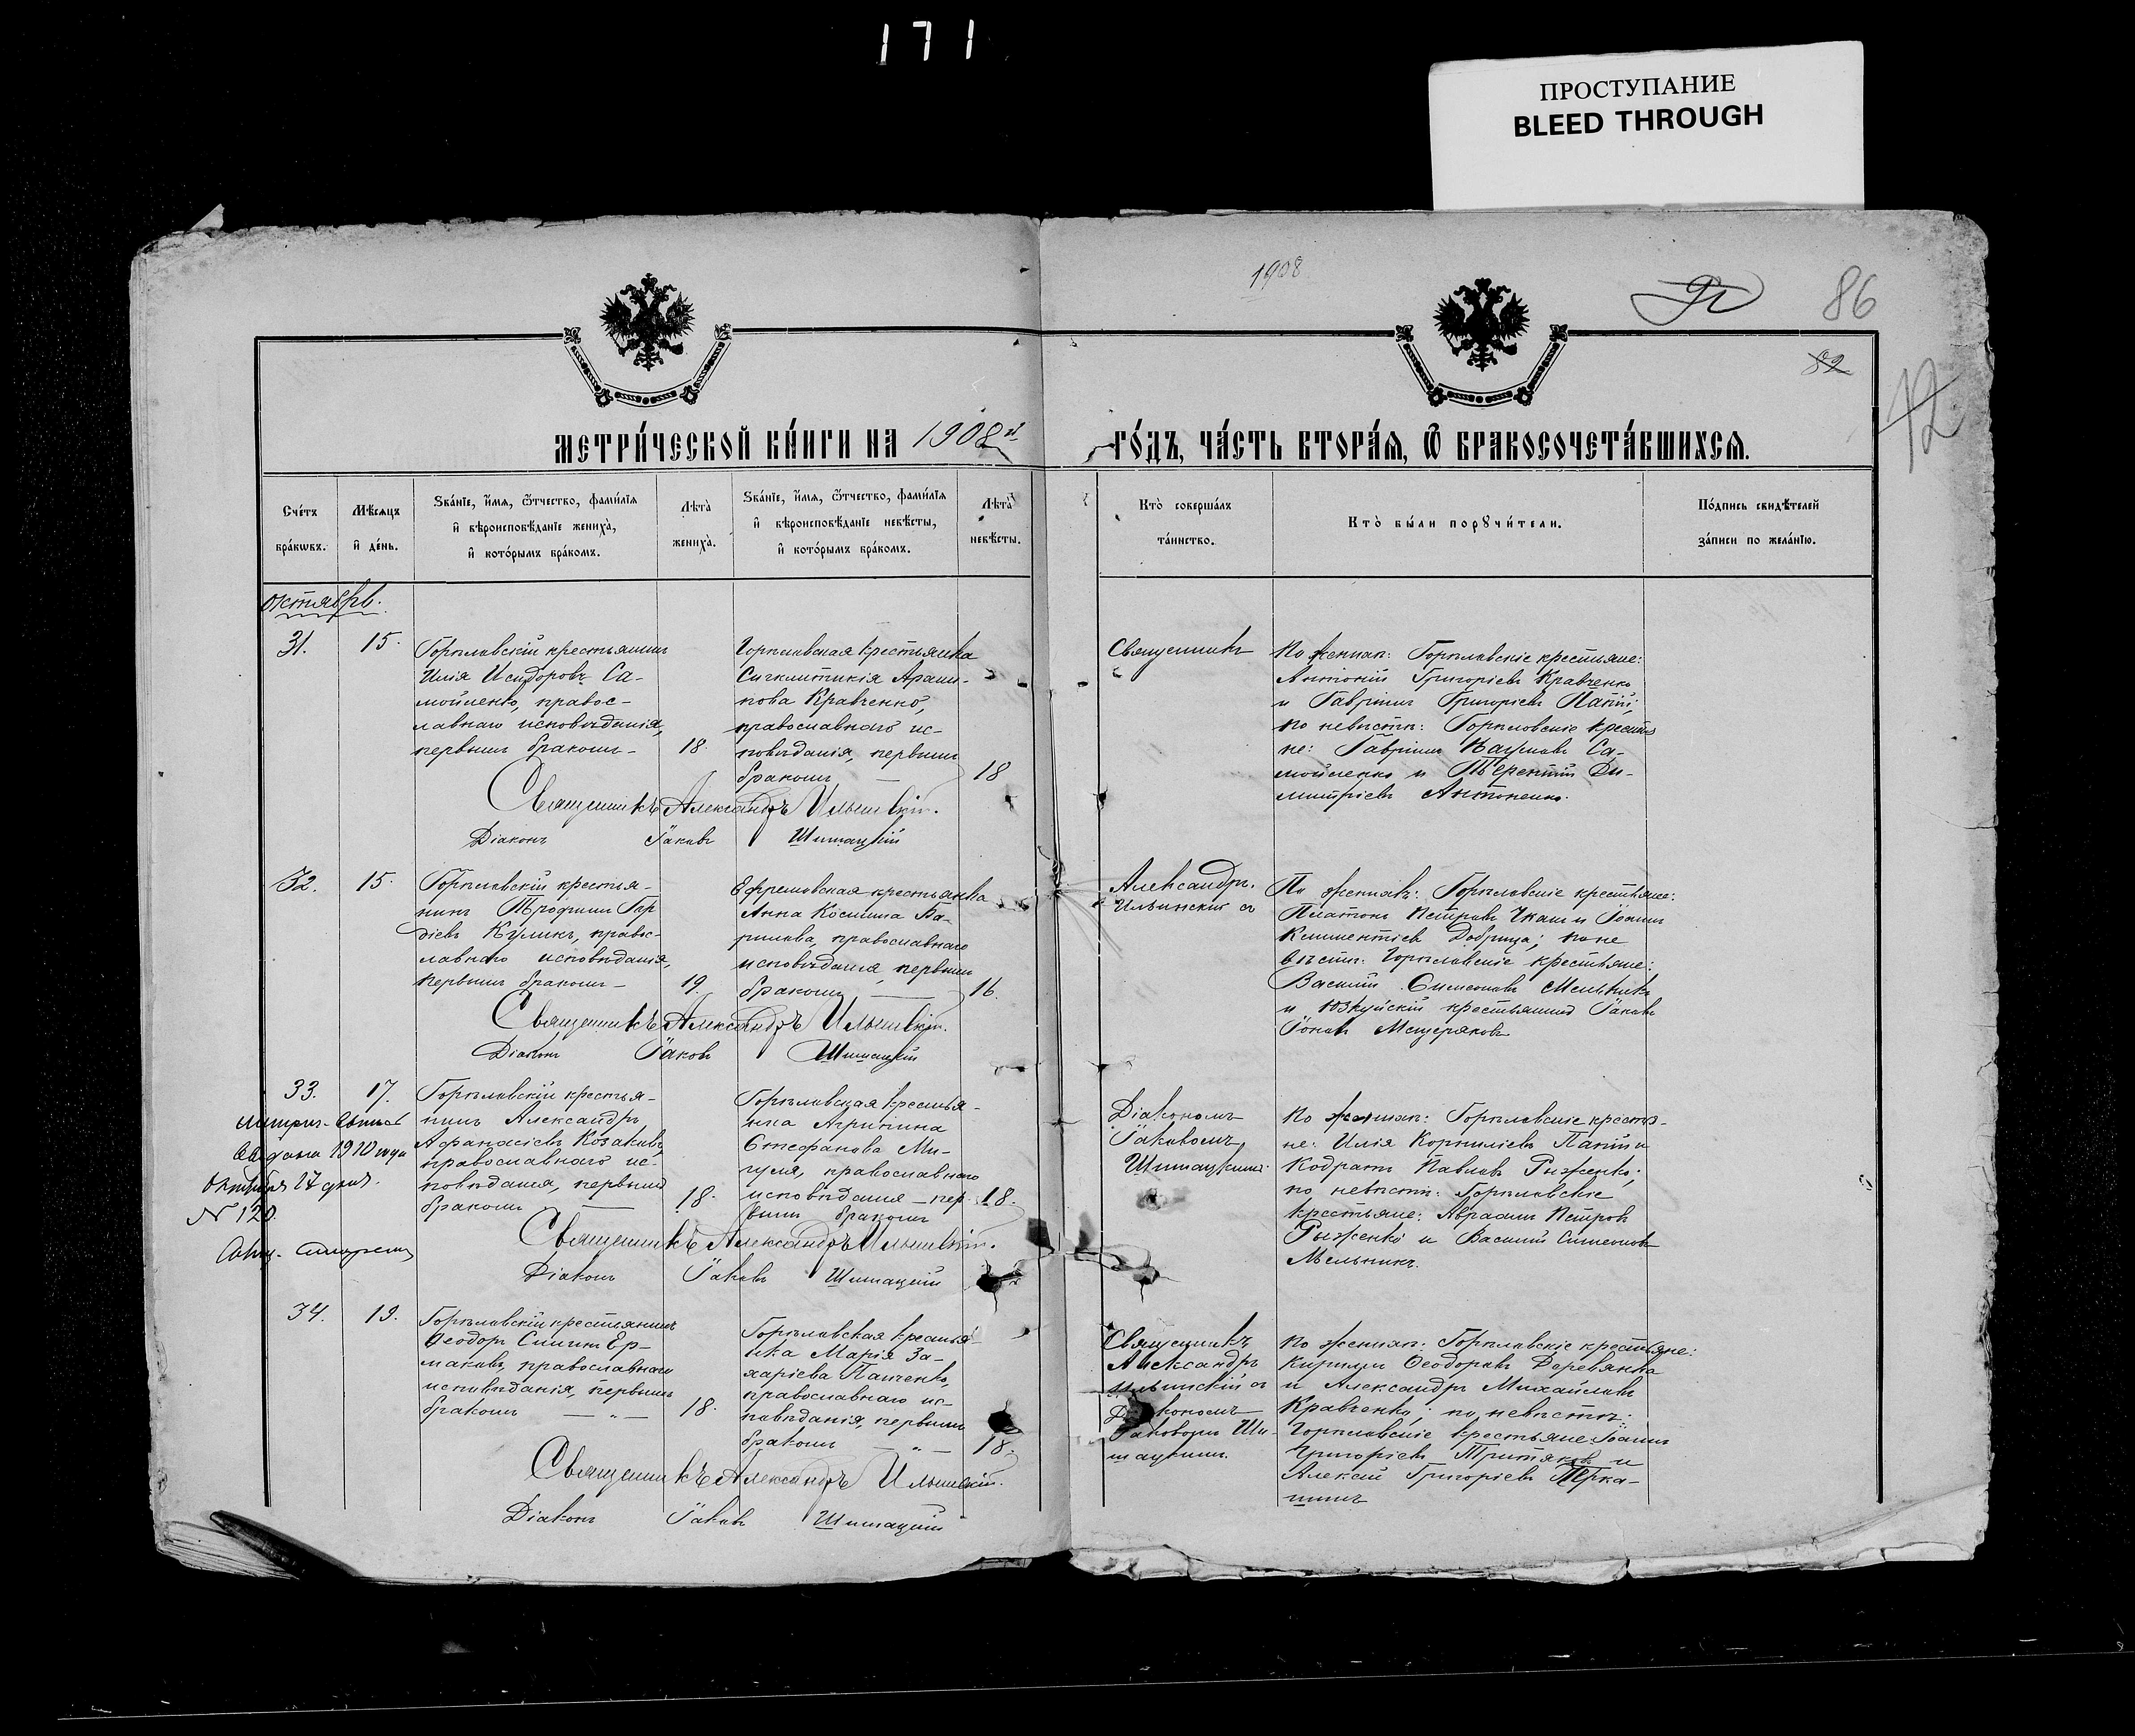 171
ПРОСТУПАНИЕ
BLEED THROUGH
1908
86
82
12
МЕТРИ́ЧЕСКОЙ КНИ́ГИ НА 1908й
ГО́ДЪ, ЧА́СТЬ ВТОРА́Я, Ѿ БРАКОСОЧЕТА́ВШИХСЯ.
Сче́тъ бра́кѡвъ.
Мѣ́сяцъ и де́нь.
Зва́нїе, и́мя, ѻ́тчество, фами́лїя и вѣроисповѣ́данїе жениха̀, и кото́рымъ бра́комъ.
Лѣта̀ жениха̀.
Зва́нїе, и́мя, ѻ́тчество, фами́лїя и вѣроисповѣ́данїе невѣ́сты, и кото́рымъ бра́комъ.
Лѣта̀ невѣ́сты.
Кто̀ соверша́лъ та́инство.
Кто̀ бы́ли порꙋчи́тели.
По́дпись свидѣ́телей за́писи по жела́нїю.
Октябрь.
31.
15.
Горѣловскій крестьянинъ
Илія Исидоровъ Са-
мойленко, правос-
лавнаго исповѣданія,
первымъ бракомъ -
18.
Горѣловская крестьянка
Синклитикія
Кравченко,
православнаго ис-
повѣданія, первымъ
бракомъ —
18
Священникъ
По жених: Горѣловскіе крестьяне:
Антоній Григоріевъ Кравченко
и Гавріилъ Григоріевъ
по невѣстѣ: Горѣловскіе крестья
не: Гавріилъ Наумовъ Са-
мойленко и Терентій Ди-
митріевъ Антоненко.
Священникъ Александръ Ильинскій.
Діаконъ Іаковъ Шишацкій
32.
15.
Горѣловскій крестья-
нинъ Трофимъ Гор
діевъ Куликъ, правос-
лавнаго исповѣданія,
первымъ бракомъ -
19.
Ефремовская крестьянка
Анна Космина
православнаго
исповѣданія, первымъ
бракомъ —
16.
Александръ
Ильинскій съ
По женихѣ: Горѣловскіе крестьяне:
Платонъ Петровъ и Іоаннъ
Климентіевъ Добрица; по не
вѣстѣ: Горѣловскіе крестьяне:
Василій Симеоновъ Мельникъ
и крестьянинъ Іаковъ
Іоновъ Мещеряковъ
Священникъ Александръ Ильинскій.
Діаконъ Іаковъ Шишацкій
33.
17.
Горѣловскій крестья-
нинъ Александръ
Афанасіевъ Козаковъ,
православнаго ис-
повѣданія, первымъ
бракомъ —
18.
Горѣловская крестья-
нка Агрипина
Стефанова Ми-
гуля, православнаго
исповѣданія - пер-
вымъ бракомъ
18.
Діакономъ
Іаковомъ
Шишацкимъ.
По жених: Горѣловскіе крестья-
не: Илія Корниліевъ и
Кодратъ Павловъ Рыженко;
по невѣстѣ: Горѣловскіе
крестьяне: Авраамъ Петровъ
Рыженко и Василій Симеоновъ
Мельникъ.
выдана 1910 года
Октября 27 дня.
№ 120.
Священникъ Александръ Ильинскій.
Діаконъ Іаковъ Шишацкій
34.
19.
Горѣловскій крестьянинъ
Ѳеодоръ Ер-
маковъ, православнаго
исповѣданія, первымъ
бракомъ — „ —
18.
Горѣловская крестья-
нка Марія За-
харіева Панченко,
православнаго ис-
повѣданія, первымъ
бракомъ — „ —
18.
Священникъ
Александръ
Ильинскій съ
Діакономъ
Іаковомъ Ши-
шацкимъ.
По жених: Горѣловскіе крестьяне:
Кириллъ Ѳеодоровъ Деревянко
и Александръ Михайловъ
Кравченко; по невѣстѣ:
Горѣловскіе крестьяне: Іоаннъ
Григоріевъ Третяковъ и
Алексій Григоріевъ
Священникъ Александръ Ильинскій.
Діаконъ Іаковъ Шишацкій